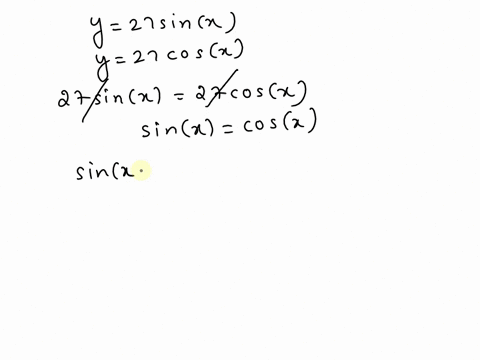 y = 27 sin(x)
y = 27 cos(x)
27 sin(x) = 27 cos(x)
sin(x) = cos(x)
sin(x